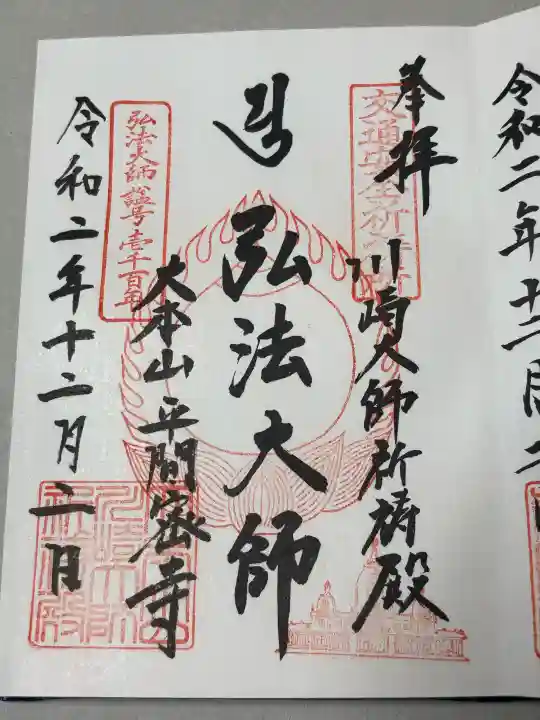 令和二年十二月二
奉拝
交通安全祈祷所
川崎大師祈祷殿
弘法大師
大本山平間密寺
弘法大師諡号壱千百年
令和二年十二月二日